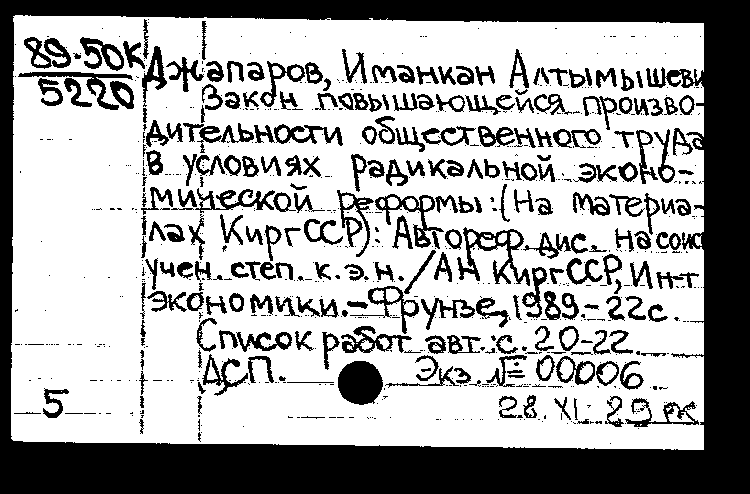 89-50К
5220
Джапаров, Иманкан Алтымышеви
Закон повышающейся произво-
дительности общественного труда
в условиях радикальной эконо-
мической реформы: (На материа-
лах КиргССР): Автореф. дис. на соис
учен. степ. к.э.н. / АН КиргССР, Ин-т
экономики. – Фрунзе, 1989. – 22 с.
Список работ авт.: с. 20-22.
ДСП. Экз. № 00006.
5
28. XI. 29